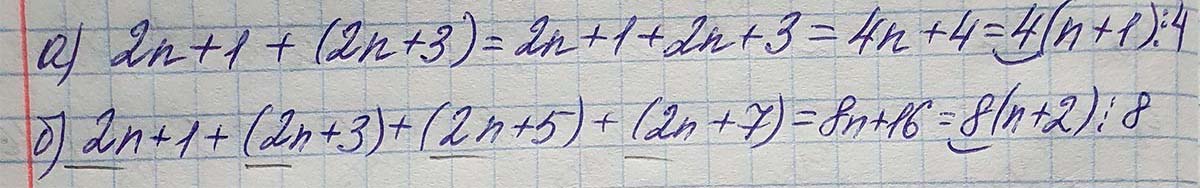 а) 2n+1+(2n+3)=2n+1+2n+3=4n+4=4(n+1)⋮4
б) 2n+1+(2n+3)+(2n+5)+(2n+7)=8n+16=8(n+2)⋮8